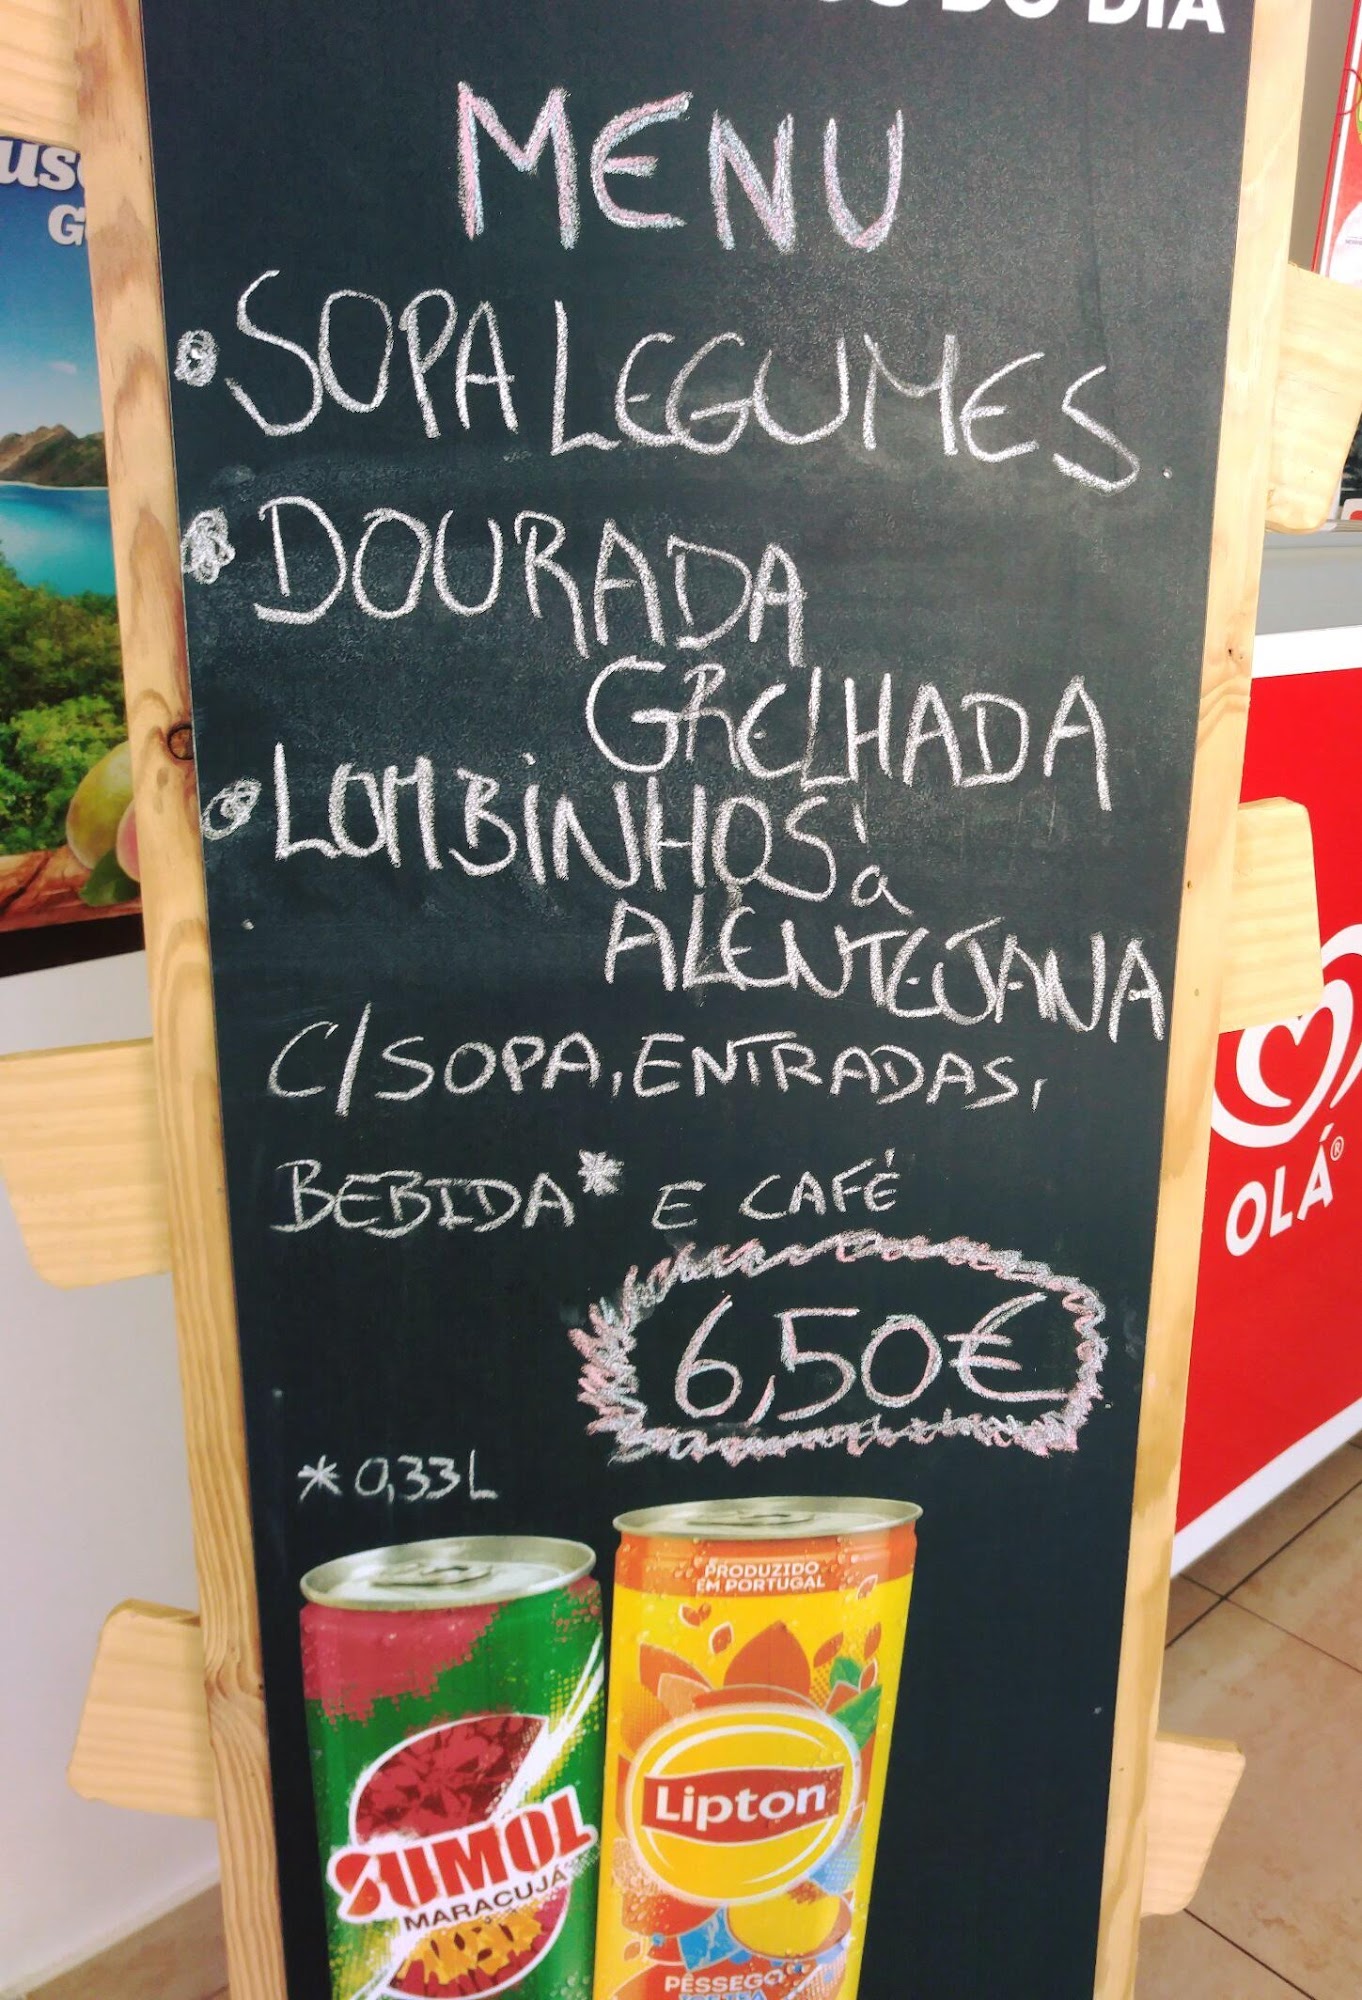 DO DIA
MENU
SOPA LEGUMES.
DOURADA
GRELHADA
LOMBINHOS à
ALENTEJANA
C/SOPA, ENTRADAS,
BEBIDA* E CAFÉ
6,50€
*0,33L
PRODUZIDO
EM PORTUGAL
Lipton
PÊSSEGO
ICE TEA
SUMOL
MARACUJÁ
OLÁ®